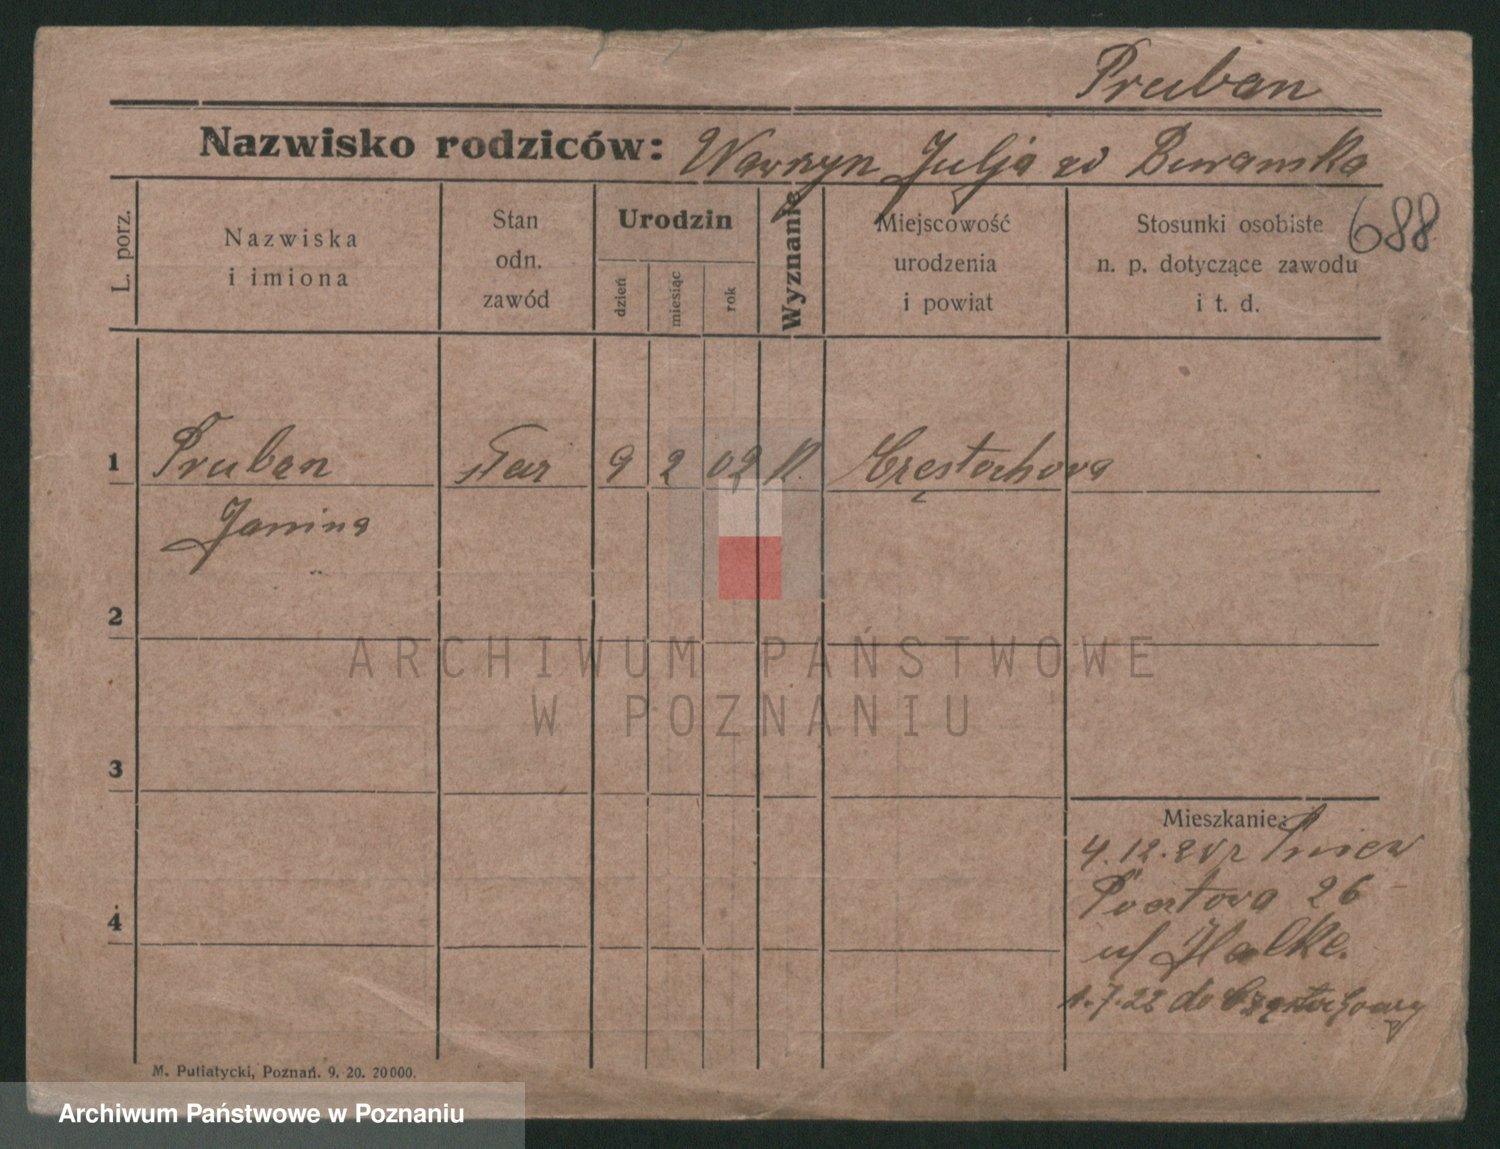 Pruban
Nazwisko rodziców: Wawrzyn Julja zd
688
L. porz.
Nazwiska
i imiona
Stan
odn.
zawód
Urodzin
dzień
miesiąc
rok
Wyznanie
Miejscowość
urodzenia
i powiat
Stosunki osobiste
n. p. dotyczące zawodu
i t. d.
1 Pruban 9 2 02 K. Częstochowa
Janina
2
3
4
Mieszkanie:
4.12.21 z
Pocztowa 26
u/ Halke.
1.7.22 do Częstochowy
M. Putiatycki, Poznań. 9. 20. 20000.
ARCHIWUM PAŃSTWOWE
W POZNANIU
Archiwum Państwowe w Poznaniu